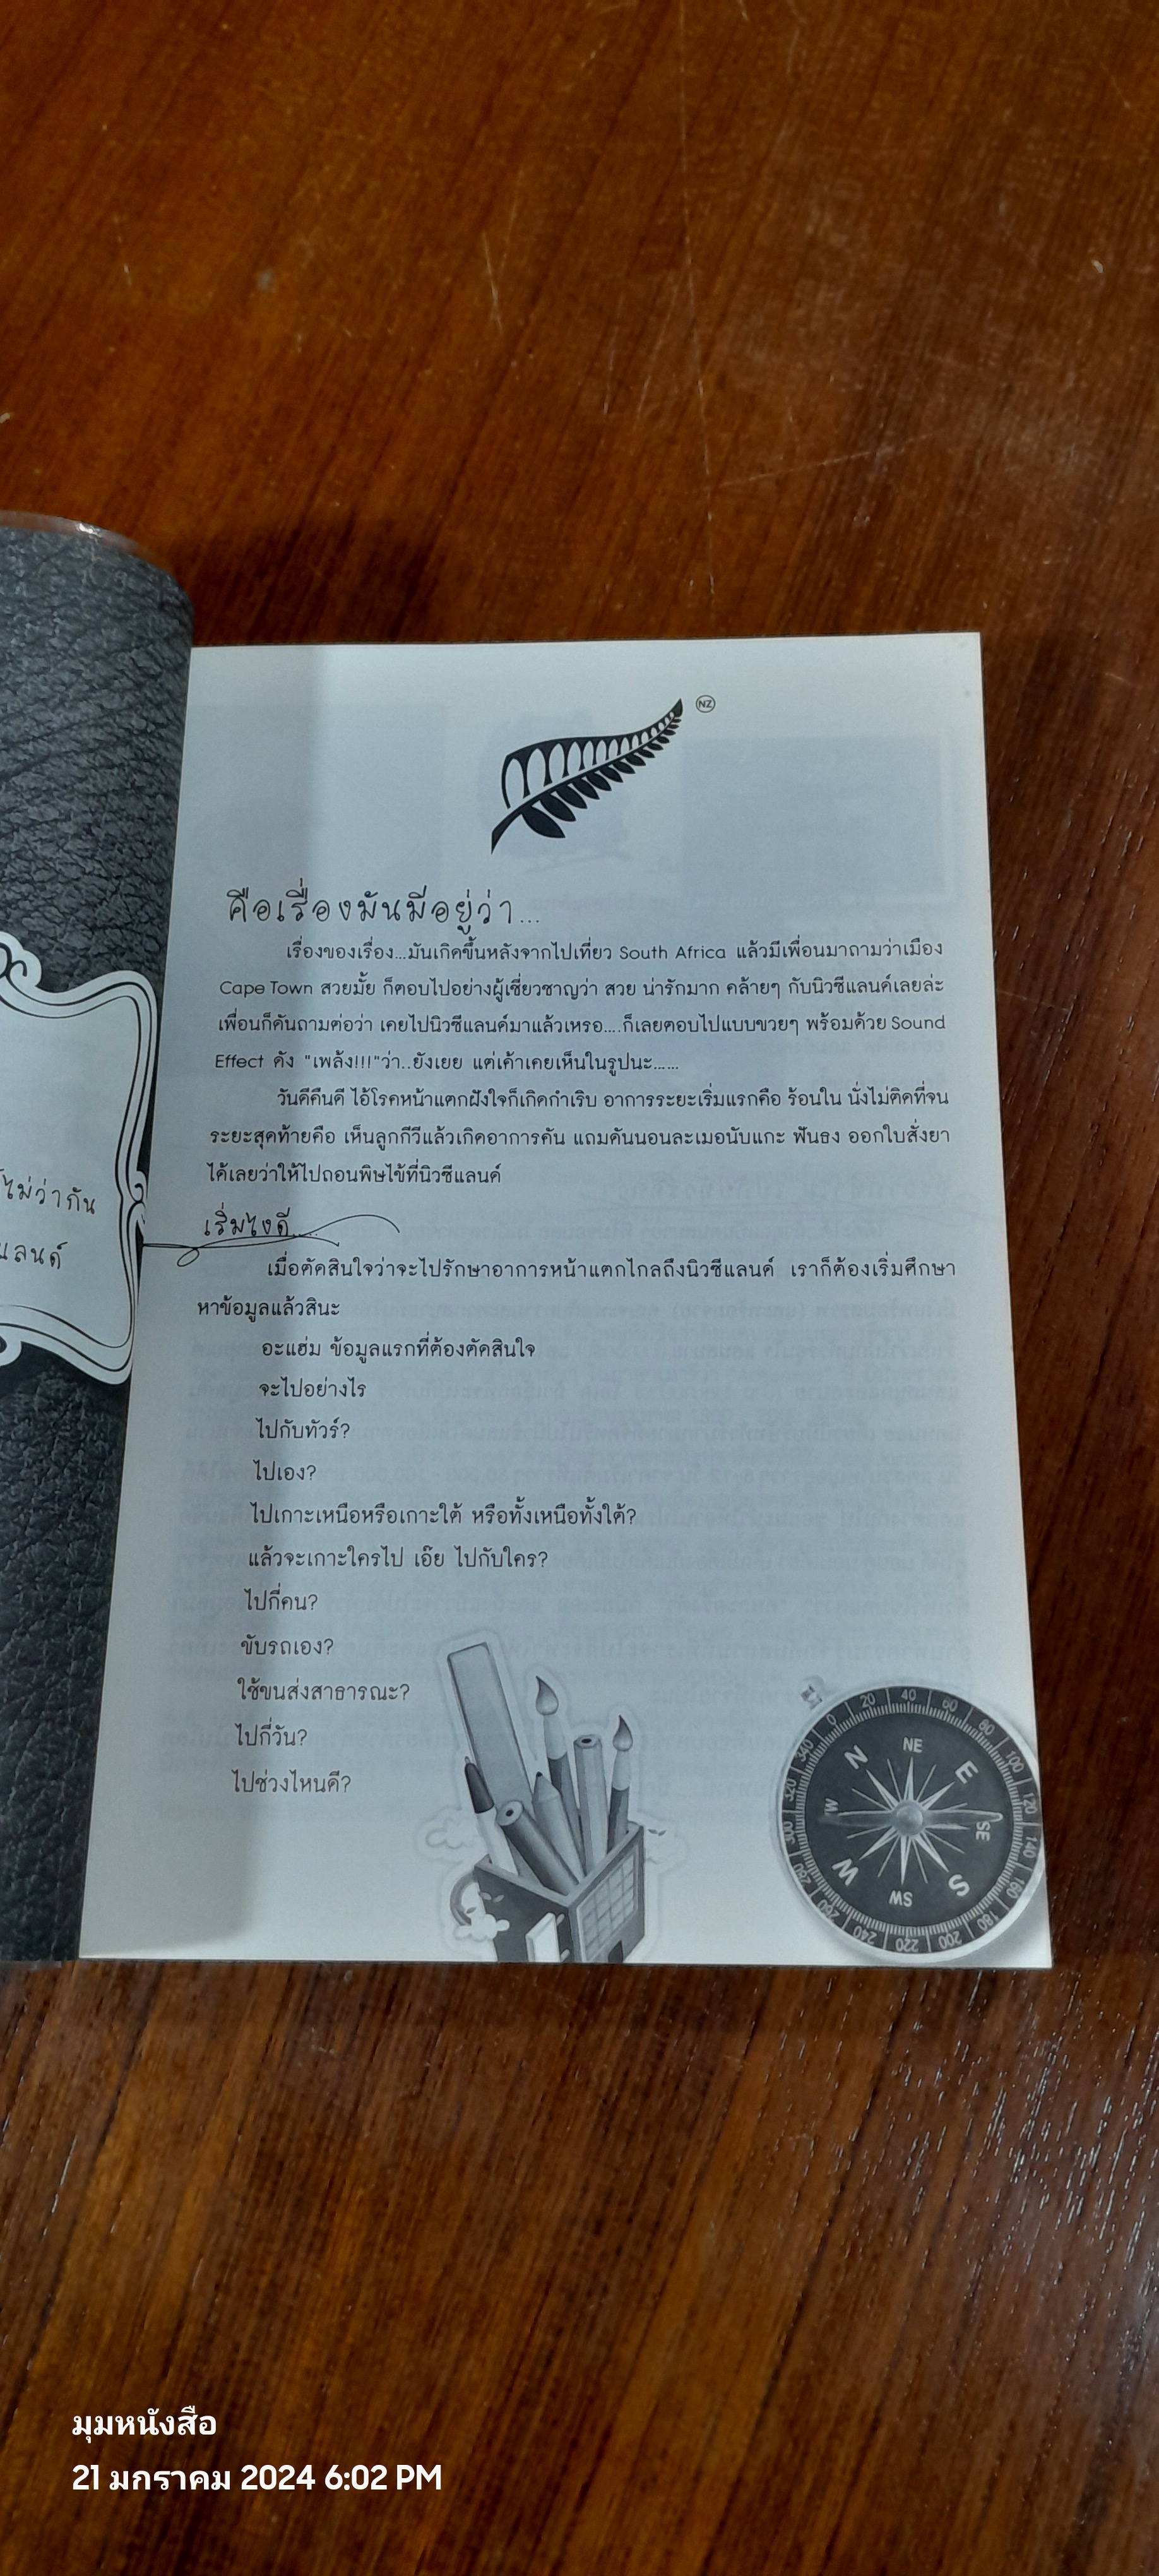 NZ
คือเรื่องมันมีอยู่ว่า...
เรื่องของเรื่อง...มันเกิดขึ้นหลังจากไปเที่ยว South Africa แล้วมีเพื่อนมาถามว่าเมือง
Cape Town สวยมั้ย ก็ตอบไปอย่างผู้เชี่ยวชาญว่า สวย น่ารักมาก คล้ายๆ กับนิวซีแลนด์เลยล่ะ
เพื่อนก็ดันถามต่อว่า เคยไปนิวซีแลนด์มาแล้วเหรอ....ก็เลยตอบไปแบบขวยๆ พร้อมด้วย Sound
Effect ดัง "เพล้ง!!!"ว่า..ยังเยย แต่เค้าเคยเห็นในรูปนะ......
วันดีคืนดี ไอ้โรคหน้าแตกฝังใจก็เกิดกำเริบ อาการระยะเริ่มแรกคือ ร้อนใน นั่งไม่ติดที่จน
ระยะสุดท้ายคือ เห็นลูกกีวีแล้วเกิดอาการคัน แถมคันนอนละเมอนับแกะ ฟันธง ออกใบสั่งยา
ได้เลยว่าให้ไปถอนพิษไข้ที่นิวซีแลนด์
ไม่ว่ากัน
แลนด์
เริ่มไงดี.....
เมื่อตัดสินใจว่าจะไปรักษาอาการหน้าแตกไกลถึงนิวซีแลนด์ เราก็ต้องเริ่มศึกษา
หาข้อมูลแล้วสินะ
อะแฮ่ม ข้อมูลแรกที่ต้องตัดสินใจ
จะไปอย่างไร
ไปกับทัวร์?
ไปเอง?
ไปเกาะเหนือหรือเกาะใต้ หรือทั้งเหนือทั้งใต้?
แล้วจะเกาะใครไป เอ๊ย ไปกับใคร?
ไปกี่คน?
ขับรถเอง?
ใช้ขนส่งสาธารณะ?
ไปกี่วัน?
ไปช่วงไหนดี?
0 20 40 60 80 100 120 140 160 180 200 220 240 260 280 300 320 340
N NE E SE S SW W
มุมหนังสือ
21 มกราคม 2024 6:02 PM